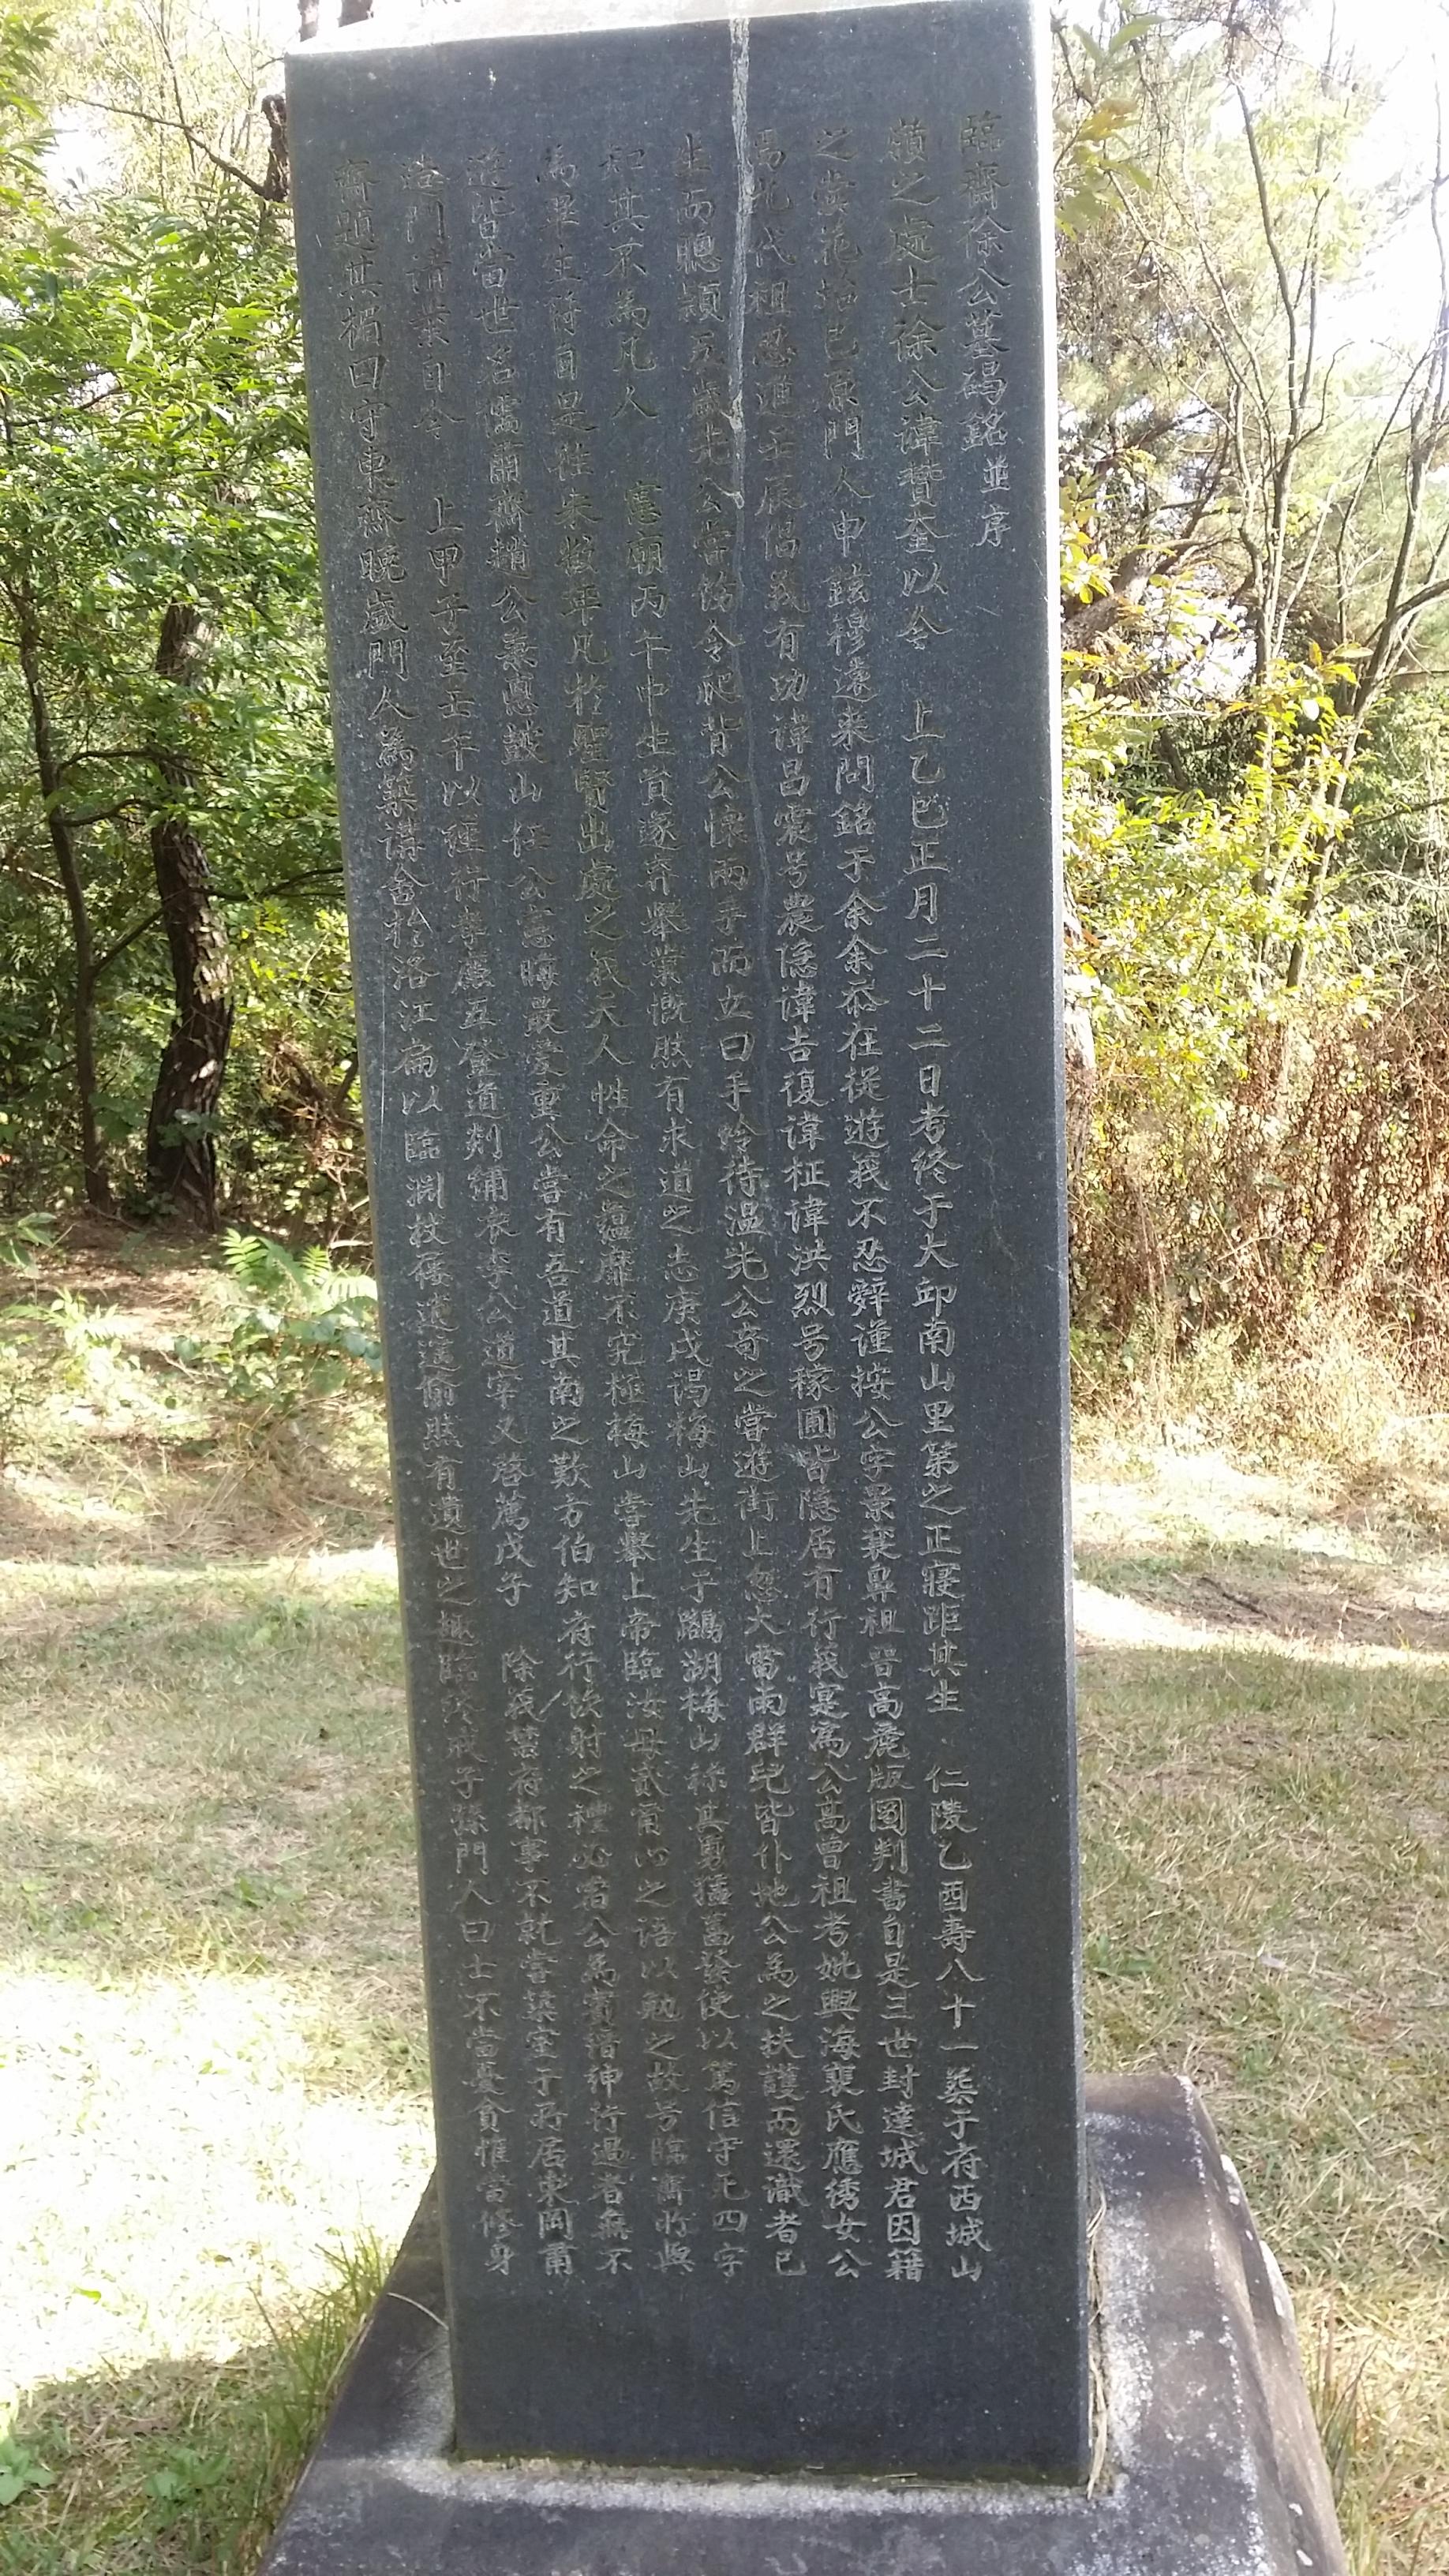 臨齋徐公墓碣銘 並序
嶺之處士徐公諱贊奎以今 上乙巳正月二十二日考終于大邱南山里第之正寢距其生 仁陵乙酉壽八十一葬于府西城山
之 已原門人申 穆遠来問銘于余余忝在從遊義不忍辭謹按公字景襄鼻祖晋高麗版圖判書自是三世封達城君因籍
焉 代祖忍 壬辰倡義有功諱昌震号農隐諱吉復諱柾諱洪烈号稼圃皆隐居有行義寔爲公高曾祖考妣興海裵氏應綉女公
生而聰穎五歲先公嘗 令爬背公懷兩手而立曰手冷待温先公奇之嘗遊街上忽大雷雨群兒皆仆地公為之扶護而還識者已
知其不為凡人 憲廟丙午中生員遂弃舉業慨然有求道之志庚戌謁梅山先生于鷺湖梅山称其勇猛 發使以篤信守死四字
為畢生符自是往来數年凡於聖賢出處之義天人性命之蘊靡不究極梅山嘗舉上帝臨汝毋貳甭心之語以勉之故号臨齋所與
遊皆當世名儒肅齋趙公秉悳鼓山任公憲晦最愛重公嘗有吾道其南之歎方伯知府行饮射之禮必客公為賓搢紳行過者無不
造門請業自今 上甲子至壬午以經行孝廉五登道剡繡衣李公道宰又啓薦戊子 除義禁府都事不就嘗築室于所居東岡甭
齋題其楣曰守東齋晩歲門人為築講舍於洛江扁以臨淵杖屨 逍 然有遺世之趣臨終戒子孫門人曰士不當憂貧惟當修身